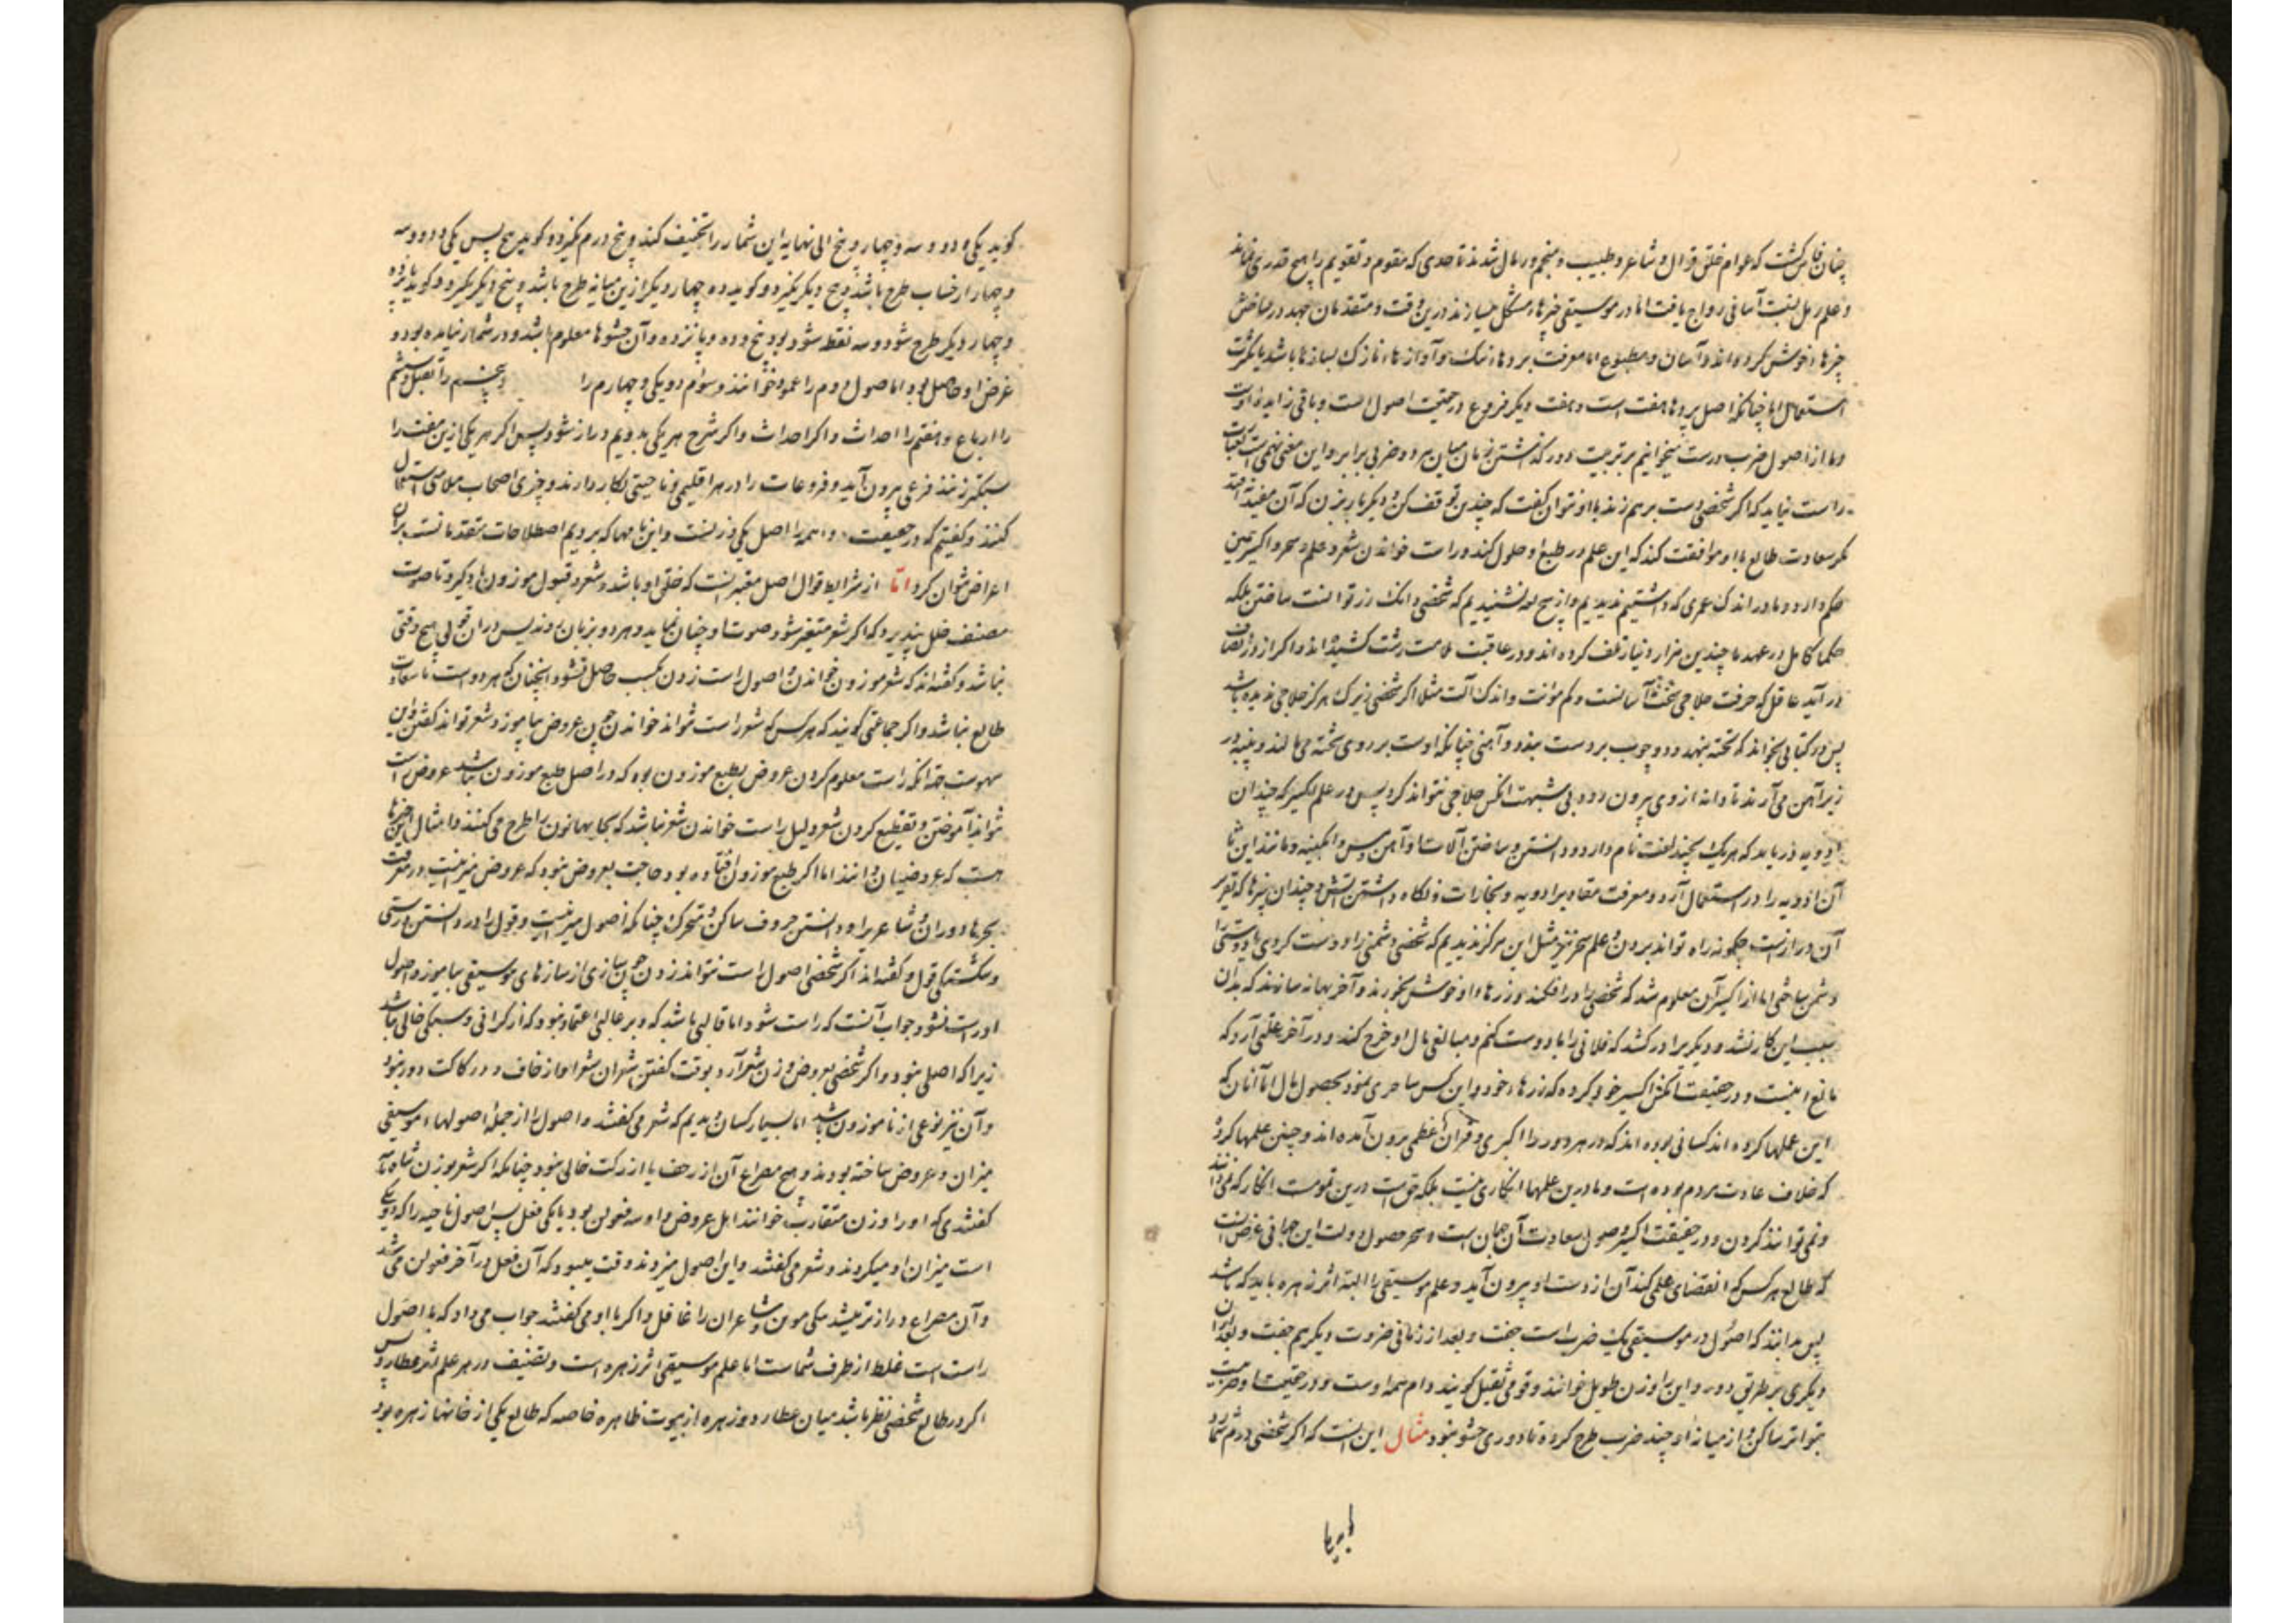 چنان فاش کشت که عوام خلق قوال و شاعر و طبیب و منجم و رمال شدند تا حدی که مقوم و تقویم را هیچ قدری نماند
و علم رمل بنسبت آسانی رواج یافت اما در موسیقی چیزها مشکل میسازند درین وقت و متقدمان جهد در ساختن
چیزهاء خوش کرده اند و آسان و مطبوع اما معرفت پردهاء نیک و آوازهاء نازک بسازها باشد یا بکثرت
استعمال اما چنانکه اصل پردها هفت است و هفت دیکر فروع در حقیقت اصول است و باقی زاید و اوست
و ما از اصول ضرب درست میخوانیم بر تربیت و در کذشتن زمان میان هر دو ضربی برابر و این معنی
راست نیاید که اکر شخصی دست بر هم زند با او نتوان کفت که چندین توقف کن و دیکر بار بزن که آن مفید
مکر سعادت طالع با او موافقت کند که این علم در طبع او حلول کند و راست خواندن شعر و علم و سحر و اکسیر همین
حکم دارد و ما در اندک عمری که داشتیم ندیدیم و از هیچ نشنیدیم که شخصی دانک زر توانست ساختن بلکه
حکماء کامل در عهد ما چندین هزار دینار تلف کرده اند و در عاقبت ملامت زشت کشیده اند و اکر از در انصاف
در آید عاقل که حرفت حلاجی سخت آسانست و کم مؤنت و اندک آلت مثلا اکر شخصی زیرک هرکز حلاجی ندیده باشد
پس در کتابی بخواند که تخته بنهد و دو چوب بر دست بیند و آهنی چنانکه اوست بر روی تخته می مالند و پنبه در
زیر آهن می آرند تا دانه از وی بیرون رود بی شبهت آنکس حلاجی نتواند کرد پس در علم اکسیر که چندان
ادویه دریابد که هر یک بچند لغت نام دارد و دانستن و ساختن آلات او آهن و مس و آبکینه و مانند این تا
آن ادویه را در استعمال آرد و معرفت مقادیر ادویه و بخارات و نکاه داشتن آتش و چندان چیزها که تقریر
آن دراز است چکونه راه تواند بردن و علم سحر نیز مثل این هرکز ندیدیم که شخصی دشمنی را دوست کردی یا دوستی را
دشمن ساختی اما از اکسیر آن معلوم شد که شخصی را در افکند و زرهاء او خوش بخورند و آخر بهانه سازند که بدان
سبب این کار نشد و دیکر برادر کشد که فلانی را با تو دوست کنم و مبالغی مال او خرج کند و در آخر علتی آرد که
مانع اینست و در حقیقت آنکس اکسیر خود کرده که زرهاء خورد و این کس ساحری نمود بحصول مال اما آنان که
این عملها کرده اند کسانی بوده اند که در هر دور دا اکبری و قران اعظمی بیرون آمده اند و چنین علمها کردند
که خلاف عادت مردم بوده است و ما درین علمها انکاری نیست بلکه حق است درین قومست انکار که نمی دانند
و نمی توانند کردن و در حقیقت اکسیر وصول سعادت آن جهان است و سحر حصول دولت این جهانی غرض آنست
که طالع هر کس که اقتضای علمی کند آن از دست او بیرون آید و علم موسیقی را البته اثر زهره باید که باشد
پس بدانند که اصول در موسیقی یک ضرب است جفت و بعد از زمانی ضرورت دیکر هم جفت و بعد از آن
دیکری بر طریق دور و این را وزن طویل خوانند و قومی ثقیل کویند و ام همه اوست و در حقیقت او ضربیست
متواتر ساکن و از میانه او چند ضرب طرح کرده تا دوری حشو نبود مثال این آنست که اکر شخصی درم شمارد
کوید یکی و دو و سه و چهار و پنج الی نهایه این شمار را تخفیف کند و پنج درم بکیرد و کوید پنج پس یکی و دو و سه
و چهار از حساب طرح باشد و پنج دیکر بکیرد و کوید ده چهار دیکر ازین میانه طرح باشد و پنج دیکر بکیرد و کوید پانزده
و چهار دیکر طرح شود و سه نقطه شود بود پنج و ده و پانزده و آن حشوها معلوم باشد و در شمار نیاید بود و
غرض او حاصل بود اما اصول دوم را عمود خوانند و سوم را دویکی و چهارم را و پنجم را ثقیل و ششم
را ارباع و هفتم را احداث و اکر احداث و اکر شرح هر یکی بدهیم دراز شود پس اکر هر یکی ازین هفت را
سبکتر زنند فرعی بیرون آید و فروعات را در هر اقلیمی و ناحیتی بکار دارند و چیزی اصحاب ملاهی استعمال
کنند و کفتیم که در حقیقت همه را اصل یکی وزنست و این نامها که بردیم اصطلاحات متقدمانست بر آن
اعراض نتوان کرد اما از شرایط قوال اصل معتبر آنست که خلق او باشد و شعر و قبول موزون یاد کیرد تا صوت
مصنف خلل نپذیرد که اکر شعر متغیر شود صوت او چنان نماید و هر دو بزیان روند پس در آن قولی هیچ وقتی
نباشد و کفته اند که شعر موزون خواندن و اصول راست زدن بکسب حاصل نشود و همچنان که هر دو است تا سعادت
طالع نباشد و اکر جماعتی کویند که هر کس که شعر راست نتواند خواندن چون عروض بیاموزد شعر تواند کفتن و این
سهوست جهة آنکه راست معلوم کردن عروض بطبع موزون بود که در اصل طبع موزون نباشد عروض راست
نتواند آموختن و تقطیع کردن شعر دلیل راست خواندن شعر نباشد که بجایها نون را طرح می کنند و امثال این چیزها
هست که عروضیان دانند اما اکر طبع موزون افتاده بود حاجت بعروض نبود که عروض میزانیست در معرفت
بحرها و دوران و شاعر را و دانستن حروف ساکن و متحرک چنانکه اصول میزانیست و قول را در دانستن درستی
و شکستکی قول و کفته اند اکر شخصی اصول راست نتواند زدن چون سازی از سازهای موسیقی بیاموزد اصول
او راست شود و جواب آنست که راست شود اما قالبی باشد که و بر غالبی اعتماد نبود که از کرانی و سبکی خالی نباشد
زیرا که اصلی نبود و اکر شخصی بعروض وزن شعر آرد بوقت کفتن شعر آن شعر او از زحاف و در رکاکت دور نبود
و آن نیز نوعی از ناموزون باشد اما بسیار کسان دیدیم که شعر می کفتند و اصول را از جمله اصولهاء موسیقی
میزان و عروض ساخته بودند و هیچ مصراع آن از زحف یا از رکت خالی نبود چنانکه اکر شعر بوزن شاه نامه
کفتندی که او را وزن متقارب خوانند اهل عروض و او سه فعولن بود با یکی فعل پس اصول ناحیه را که دویکی
است میزان او میکردند و شعر می کفتند و این اصول میزدند وقت میبود که آن فعل در آخر فعولن می شد
و آن مصراع درازتر میشد یکی موین و شاعران را غافل و اکر با او می کفتند جواب می داد که با اصول
راست است غلط از طرف شماست اما علم موسیقی اثر زهره است و تصنیف در هر علم اثر عطارد پس
اکر در طالع شخصی نظر باشد میان عطارد و زهره از بیوت ظاهره خاصه که طالع یکی از خانهاء زهره بود